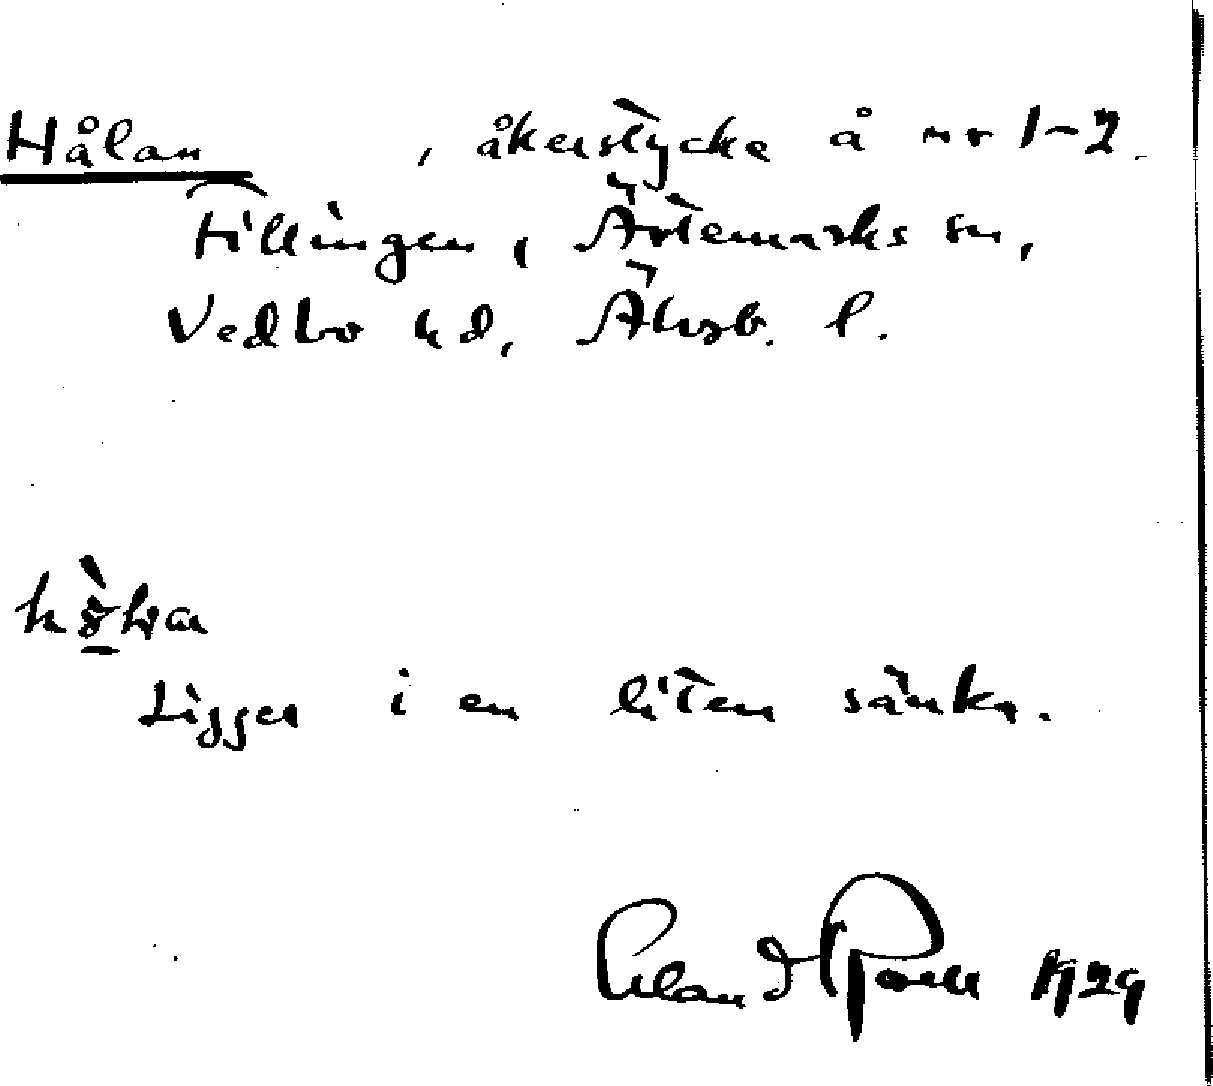 Hålan , åkerstycke å nr 1-2
Tillingen, Ärtemarks sn,
Vedbo hd, Älvsb. l.
Ligger i en liten sänka.
1929